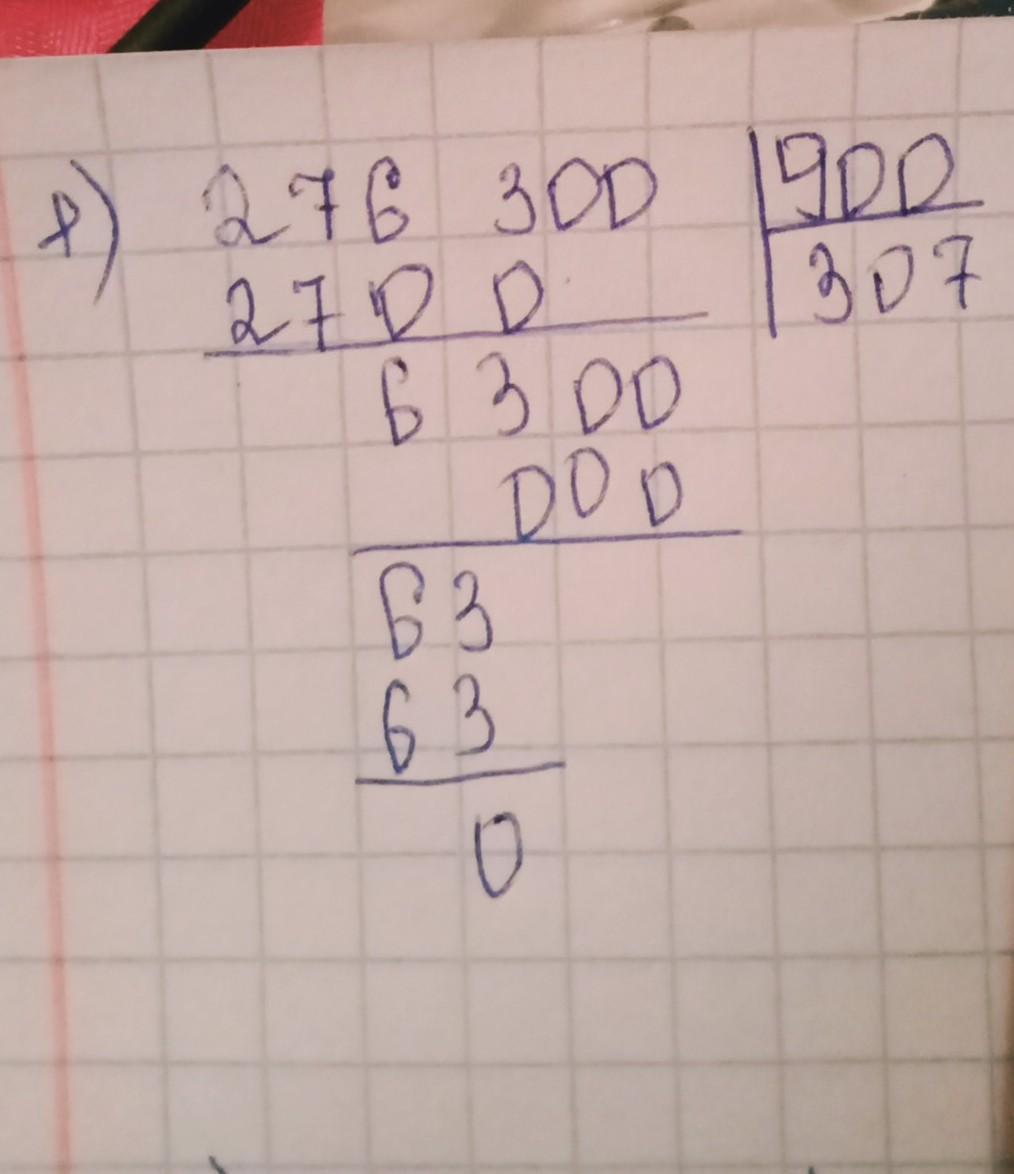 f) 276 300 |900
2700 307
6300
000
63
63
0